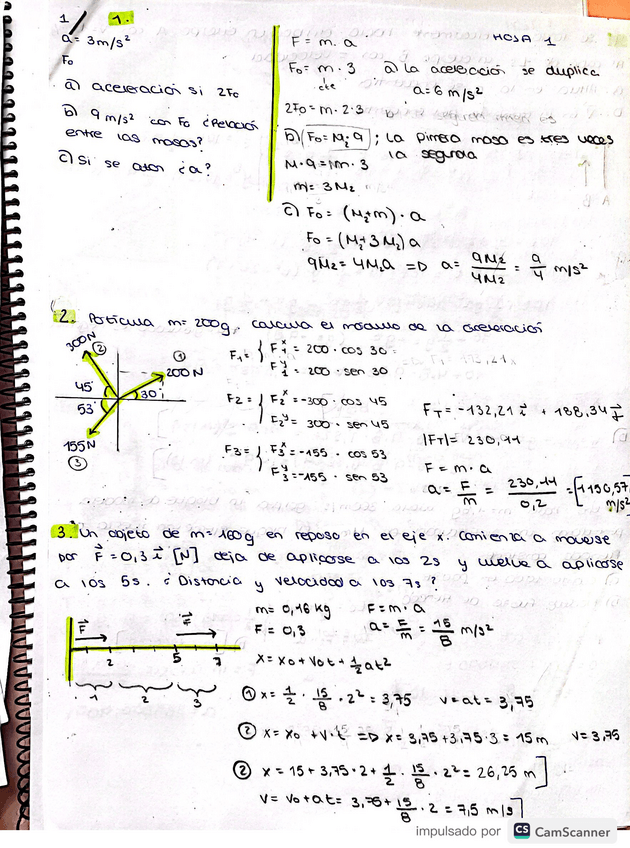 1/ 1.
a = 3m/s²
F₀
a) aceleración si 2F₀
b) 9 m/s² con F₀ ¿Relación
entre las masas?
c) Si se atan ¿a?
HOJA 1
F = m . a
F₀ = m . 3 a) La aceleración se duplica
a = 6 m/s²
2F₀ = m . 2 . 3
b) F₀ = M₂ 9 ; la primera masa es tres veces
la segunda
M . 9 = m . 3
m = 3M₂
c) F₀ = (M₂+m) . a
F₀ = (M₂+3M₂) a
9M₂ = 4M₂a => a = 9M₂/4M₂ = 9/4 m/s²
2. Partícula m = 200g, calcula el módulo de la aceleración
300N
②
①
200N
45
30
53
155N
③
F₁ = { F₁ˣ = 200 · cos 30
F₁ʸ = 200 · sen 30
F₂ = { F₂ˣ = -300 · cos 45
F₂ʸ = 300 · sen 45
F₃ = { F₃ˣ = -155 · cos 53
F₃ʸ = -155 · sen 53
F_T = -132,21 i + 188,34 j
|F_T| = 230,11
F = m · a
a = F/m = 230,11/0,2 = [1150,57 m/s²
3. Un objeto de m = 160g en reposo en el eje x. Comienza a moverse
por F = 0,3 i [N] deja de aplicarse a los 2s y vuelve a aplicarse
a los 5s. ¿Distancia y velocidad a los 7s?
F F
2 5 7
1 2 3
m = 0,16 kg F = m · a
F = 0,3 a = F/m = 15/8 m/s²
x = x₀ + v₀t + 1/2 at²
① x = 1/2 · 15/8 · 2² = 3,75 v = at = 3,75
② x = x₀ + v · t => x = 3,75 + 3,75 · 3 = 15 m v = 3,75
② x = 15 + 3,75 · 2 + 1/2 · 15/8 · 2² = 26,25 m]
v = v₀ + at = 3,75 + 15/8 · 2 = 7,5 m/s]
impulsado por CS CamScanner